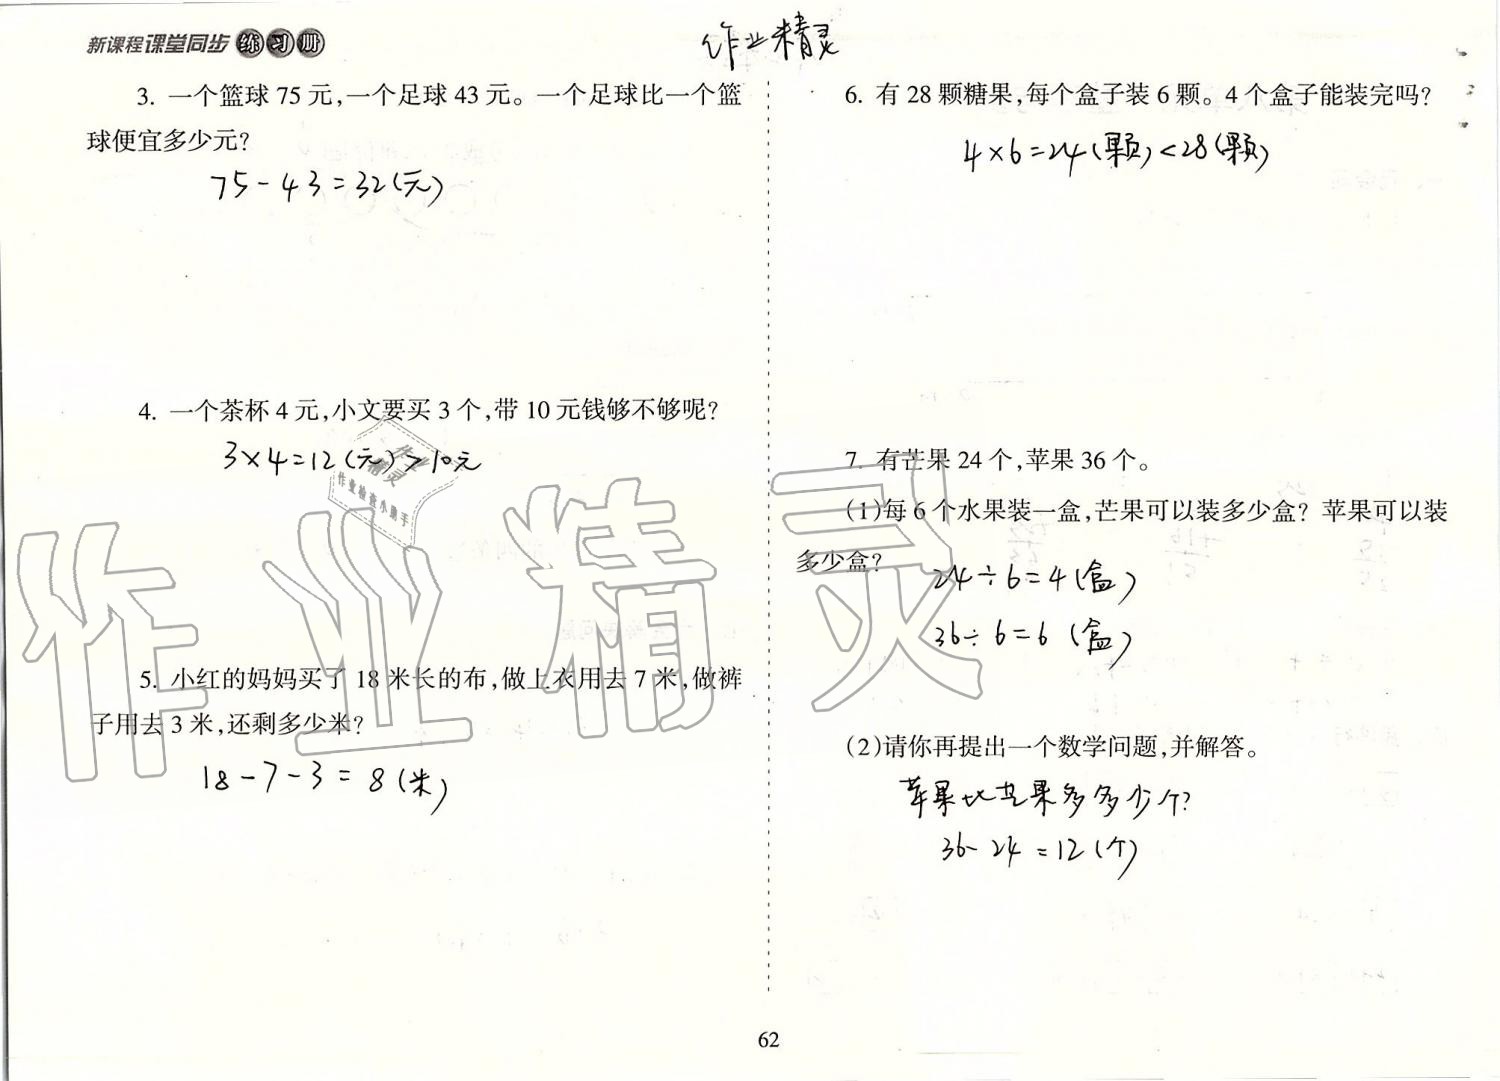 新课程课堂同步练习册
作业精灵
3. 一个篮球 75 元,一个足球 43 元。一个足球比一个篮
球便宜多少元?
75-43=32(元)
4. 一个茶杯 4 元,小文要买 3 个,带 10 元钱够不够呢?
3×4=12(元)>10元
作业精灵
作业检查小助手
5. 小红的妈妈买了 18 米长的布,做上衣用去 7 米,做裤
子用去 3 米,还剩多少米?
18-7-3=8(米)
6. 有 28 颗糖果,每个盒子装 6 颗。4 个盒子能装完吗?
4×6=24(颗)<28(颗)
7. 有芒果 24 个,苹果 36 个。
(1)每 6 个水果装一盒,芒果可以装多少盒? 苹果可以装
多少盒?
24÷6=4(盒)
36÷6=6(盒)
(2)请你再提出一个数学问题,并解答。
苹果比芒果多多少个?
36-24=12(个)
作业精灵
62